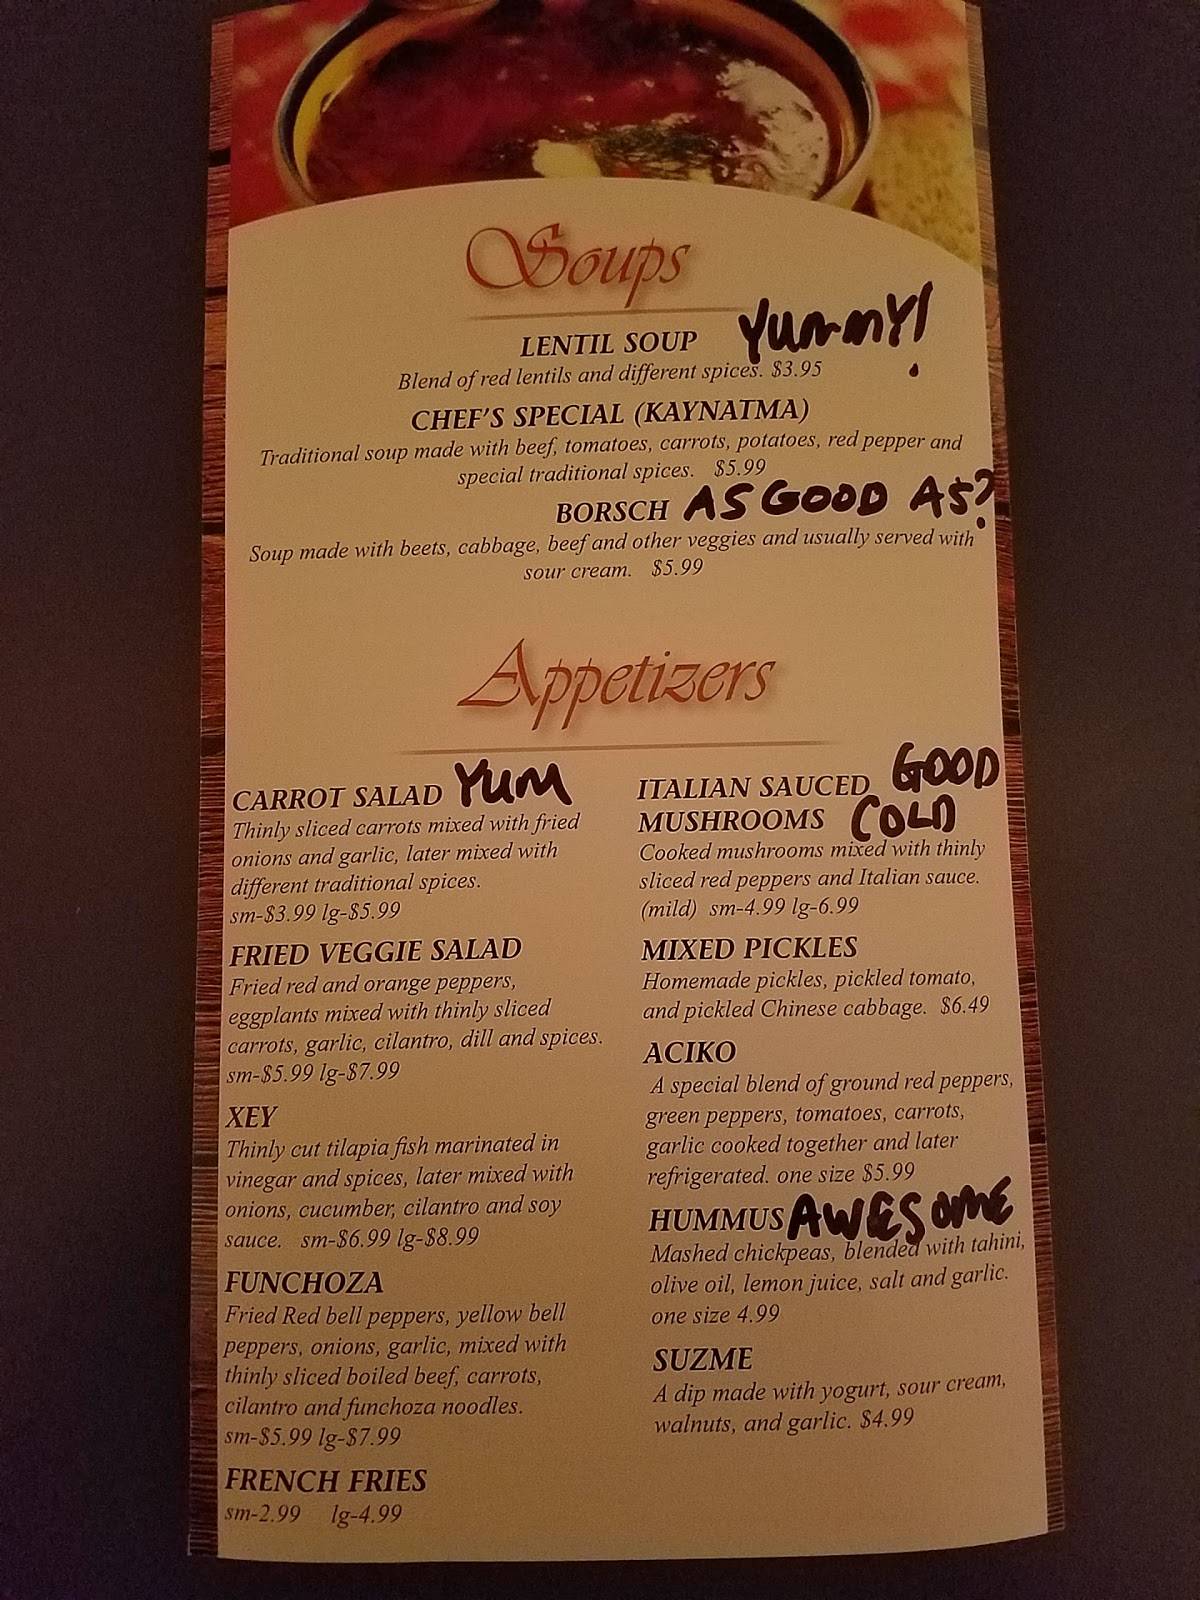 Soups
LENTIL SOUP YUMMY!
Blend of red lentils and different spices. $3.95
CHEF'S SPECIAL (KAYNATMA)
Traditional soup made with beef, tomatoes, carrots, potatoes, red pepper and
special traditional spices. $5.99
BORSCH AS GOOD AS?
Soup made with beets, cabbage, beef and other veggies and usually served with
sour cream. $5.99
Appetizers
CARROT SALAD YUM
Thinly sliced carrots mixed with fried
onions and garlic, later mixed with
different traditional spices.
sm-$3.99 lg-$5.99
FRIED VEGGIE SALAD
Fried red and orange peppers,
eggplants mixed with thinly sliced
carrots, garlic, cilantro, dill and spices.
sm-$5.99 lg-$7.99
XEY
Thinly cut tilapia fish marinated in
vinegar and spices, later mixed with
onions, cucumber, cilantro and soy
sauce. sm-$6.99 lg-$8.99
FUNCHOZA
Fried Red bell peppers, yellow bell
peppers, onions, garlic, mixed with
thinly sliced boiled beef, carrots,
cilantro and funchoza noodles.
sm-$5.99 lg-$7.99
FRENCH FRIES
sm-2.99 lg-4.99
ITALIAN SAUCED GOOD
MUSHROOMS COLD
Cooked mushrooms mixed with thinly
sliced red peppers and Italian sauce.
(mild) sm-4.99 lg-6.99
MIXED PICKLES
Homemade pickles, pickled tomato,
and pickled Chinese cabbage. $6.49
ACIKO
A special blend of ground red peppers,
green peppers, tomatoes, carrots,
garlic cooked together and later
refrigerated. one size $5.99
HUMMUS AWESOME
Mashed chickpeas, blended with tahini,
olive oil, lemon juice, salt and garlic.
one size 4.99
SUZME
A dip made with yogurt, sour cream,
walnuts, and garlic. $4.99